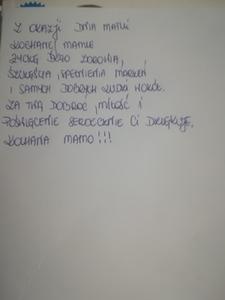 Z OKAZJI DNIA MATKI
KOCHANEJ MAMIE
ŻYCZĘ DUŻO ZDROWIA,
SZCZĘŚCIA, SPEŁNIENIA MARZEŃ
I SAMYCH DOBRYCH LUDZI WOKÓŁ.
ZA TWĄ DOBROĆ, MIŁOŚĆ I
POŚWIĘCENIE SERDECZNIE CI DZIĘKUJĘ,
KOCHANA MAMO!!!